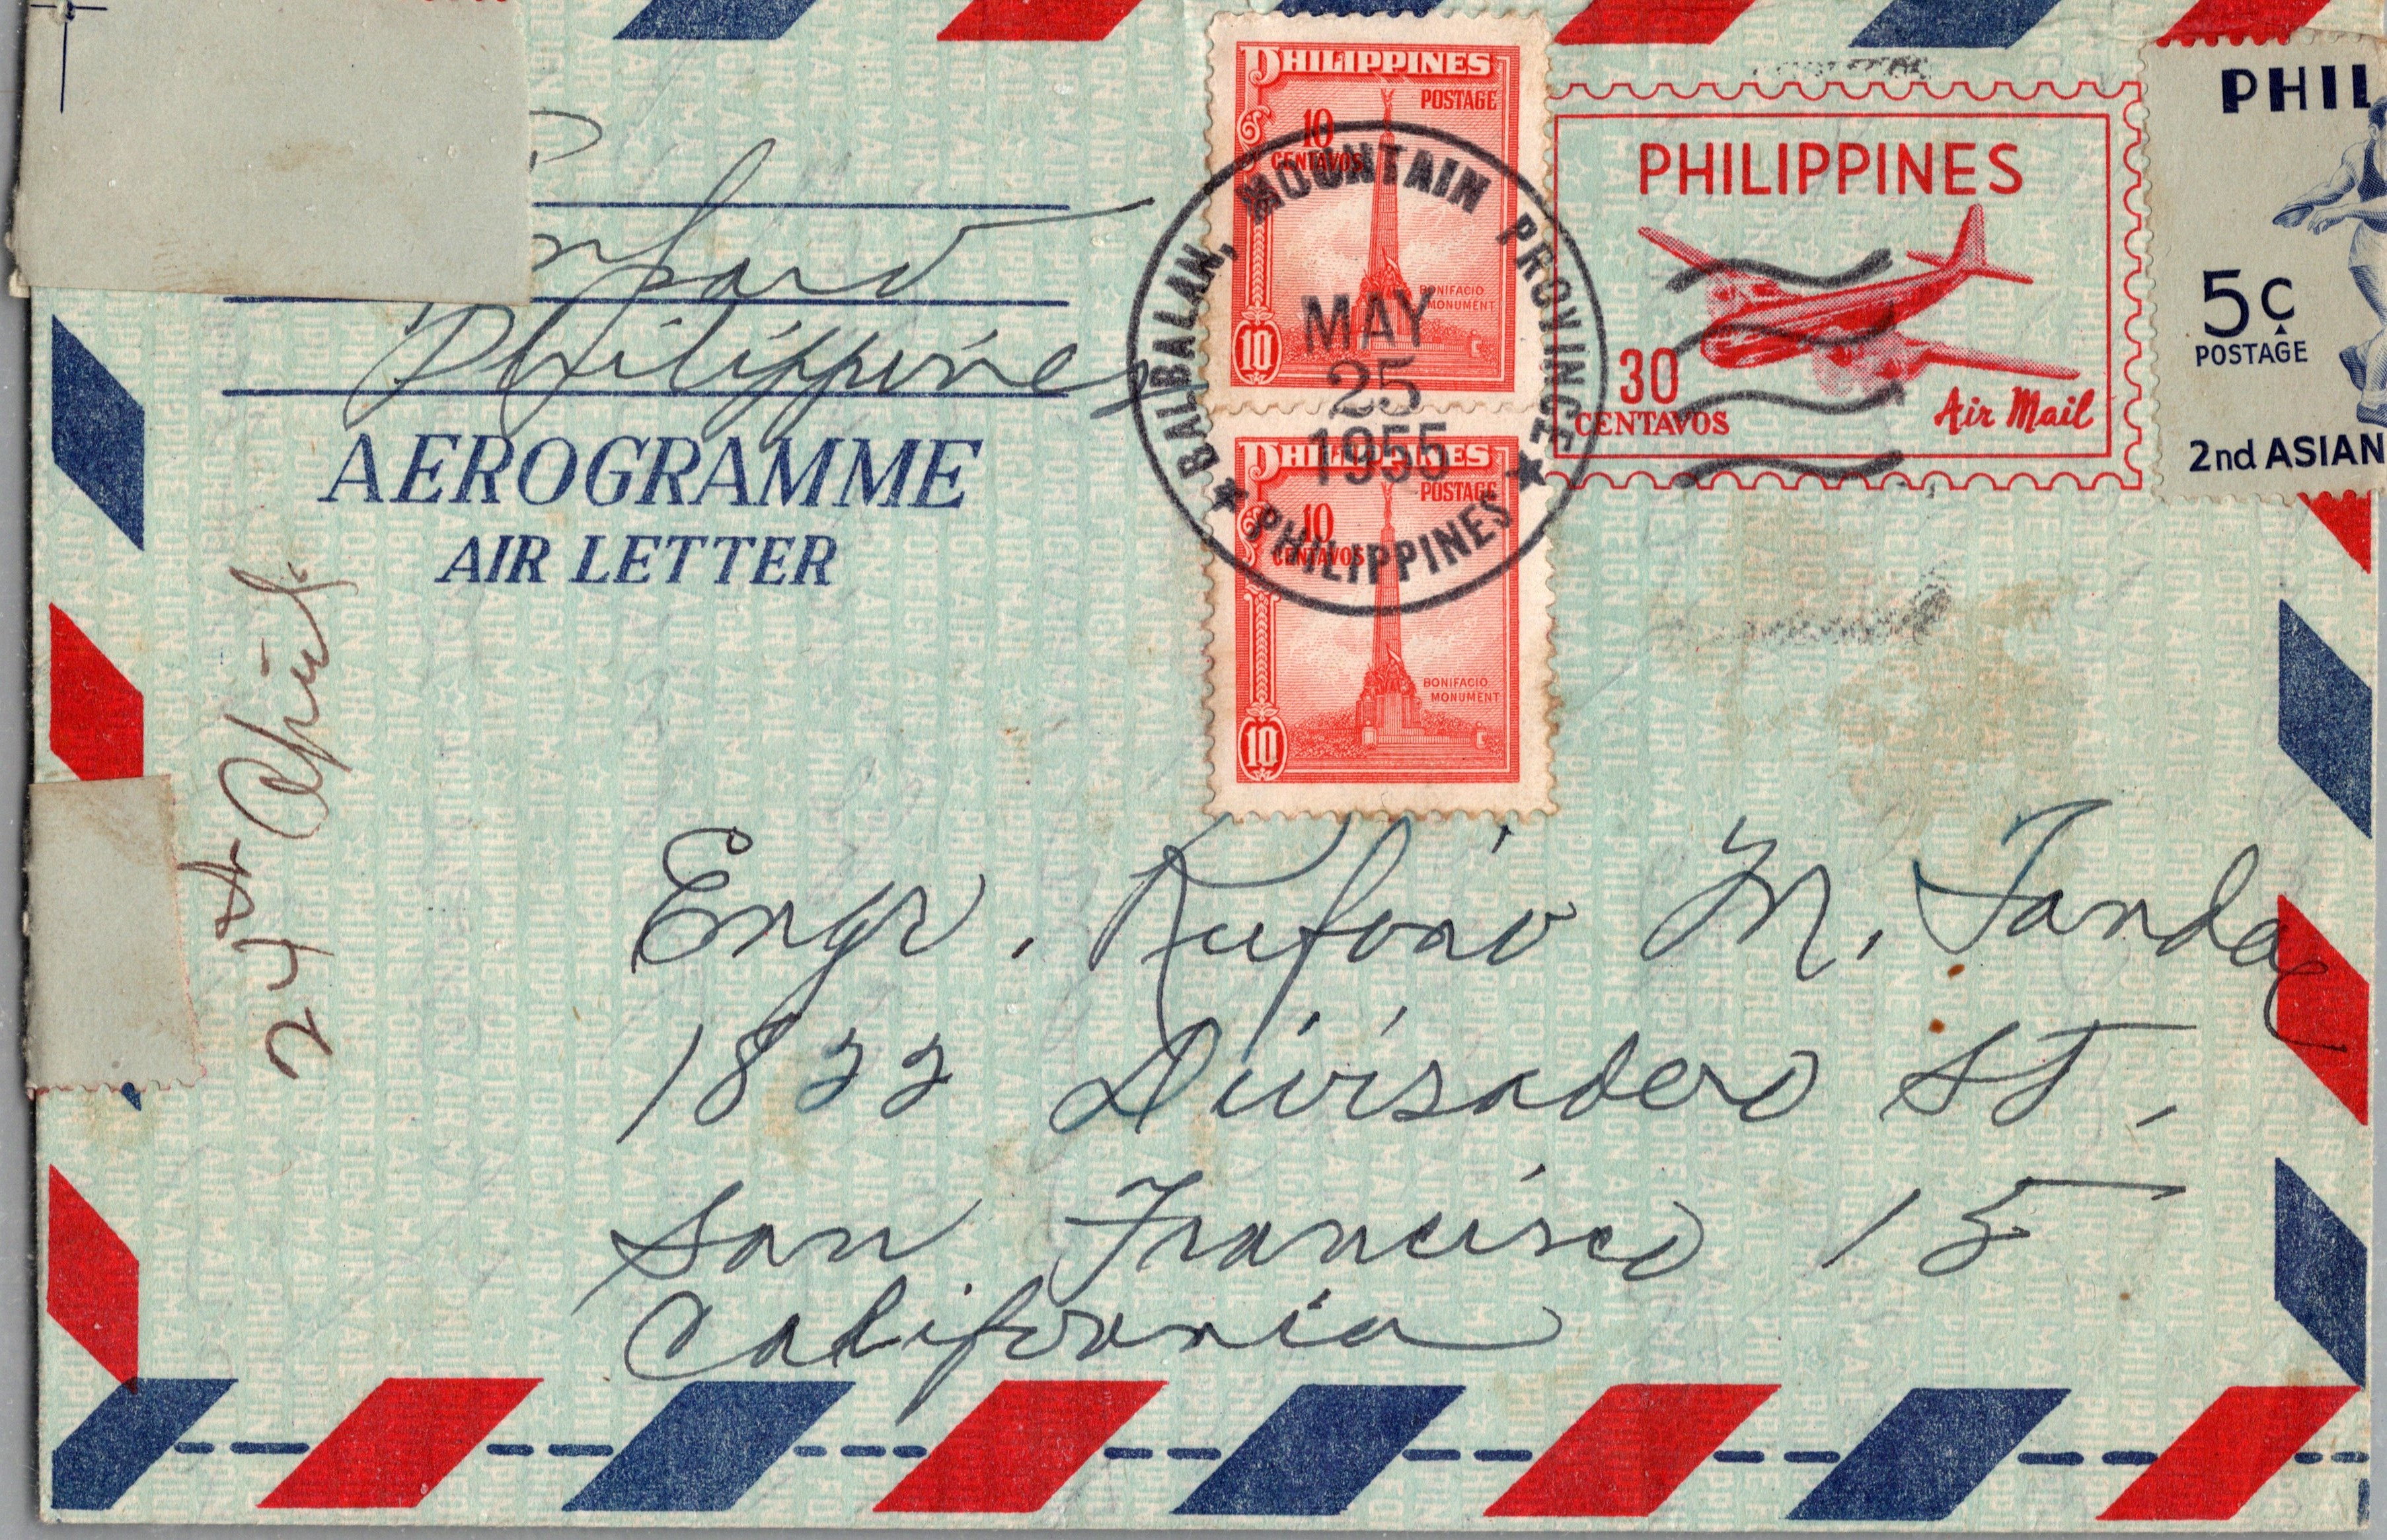 PHILIPPINES
POSTAGE
10
CENTAVOS
BONIFACIO
MONUMENT
10
PHILIPPINES
POSTAGE
10
CENTAVOS
BONIFACIO
MONUMENT
10
BALBALAN, MOUNTAIN PROVINCE
MAY
25
1955
PHILIPPINES
PHILIPPINES
30
CENTAVOS
Air Mail
PHIL
5c
POSTAGE
2nd ASIAN
Philippines
AEROGRAMME
AIR LETTER
24 April
Engr. M. Tandoc
1822 Divisadero St.
San Francisco 15
California